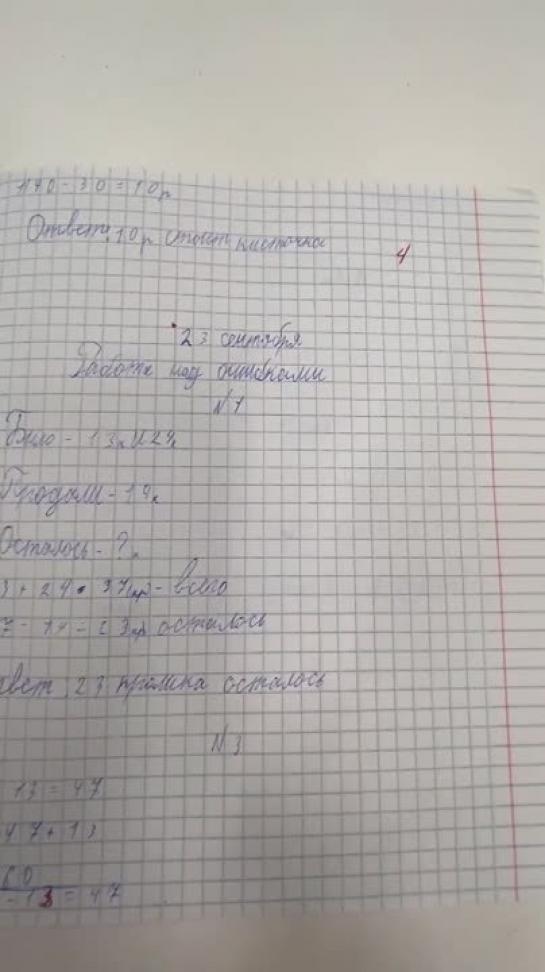 140-30=10р
Ответ: 10р стоит кисточка
4
23 сентября
Работа над ошибками
N1
Было - 13к и 24к
Продали - 14к
Осталось - ?к
3+24=37кр - всего
7-14=23кр осталось
вет 23 кролика осталось
N3
13=47
47+13
60
-13=47